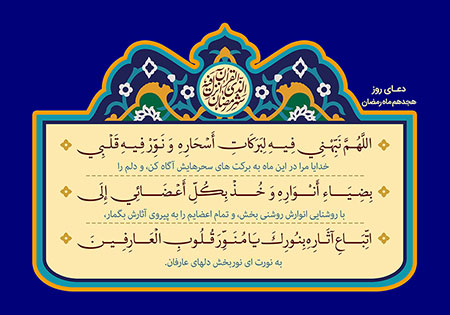 دعـای روز
هجدهم ماه رمضان
شهر رمضان الذی انزل فیه القرآن
اللَّهُمَّ نَبِّهْنِي فِيهِ لِبَرَكَاتِ أَسْحَارِهِ وَ نَوِّرْ فِيهِ قَلْبِي
خدایا مرا در این ماه به برکت های سحرهایش آگاه کن، و دلم را
بِضِيَاءِ أَنْوَارِهِ وَ خُذْ بِكُلِّ أَعْضَائِي إِلَى
با روشنایی انوارش روشنی بخش، و تمام اعضایم را به پیروی آثارش بگمار،
اتِّبَاعِ آثَارِهِ بِنُورِكَ يَا مُنَوِّرَ قُلُوبِ الْعَارِفِينَ
به نورت ای نوربخش دلهای عارفان.